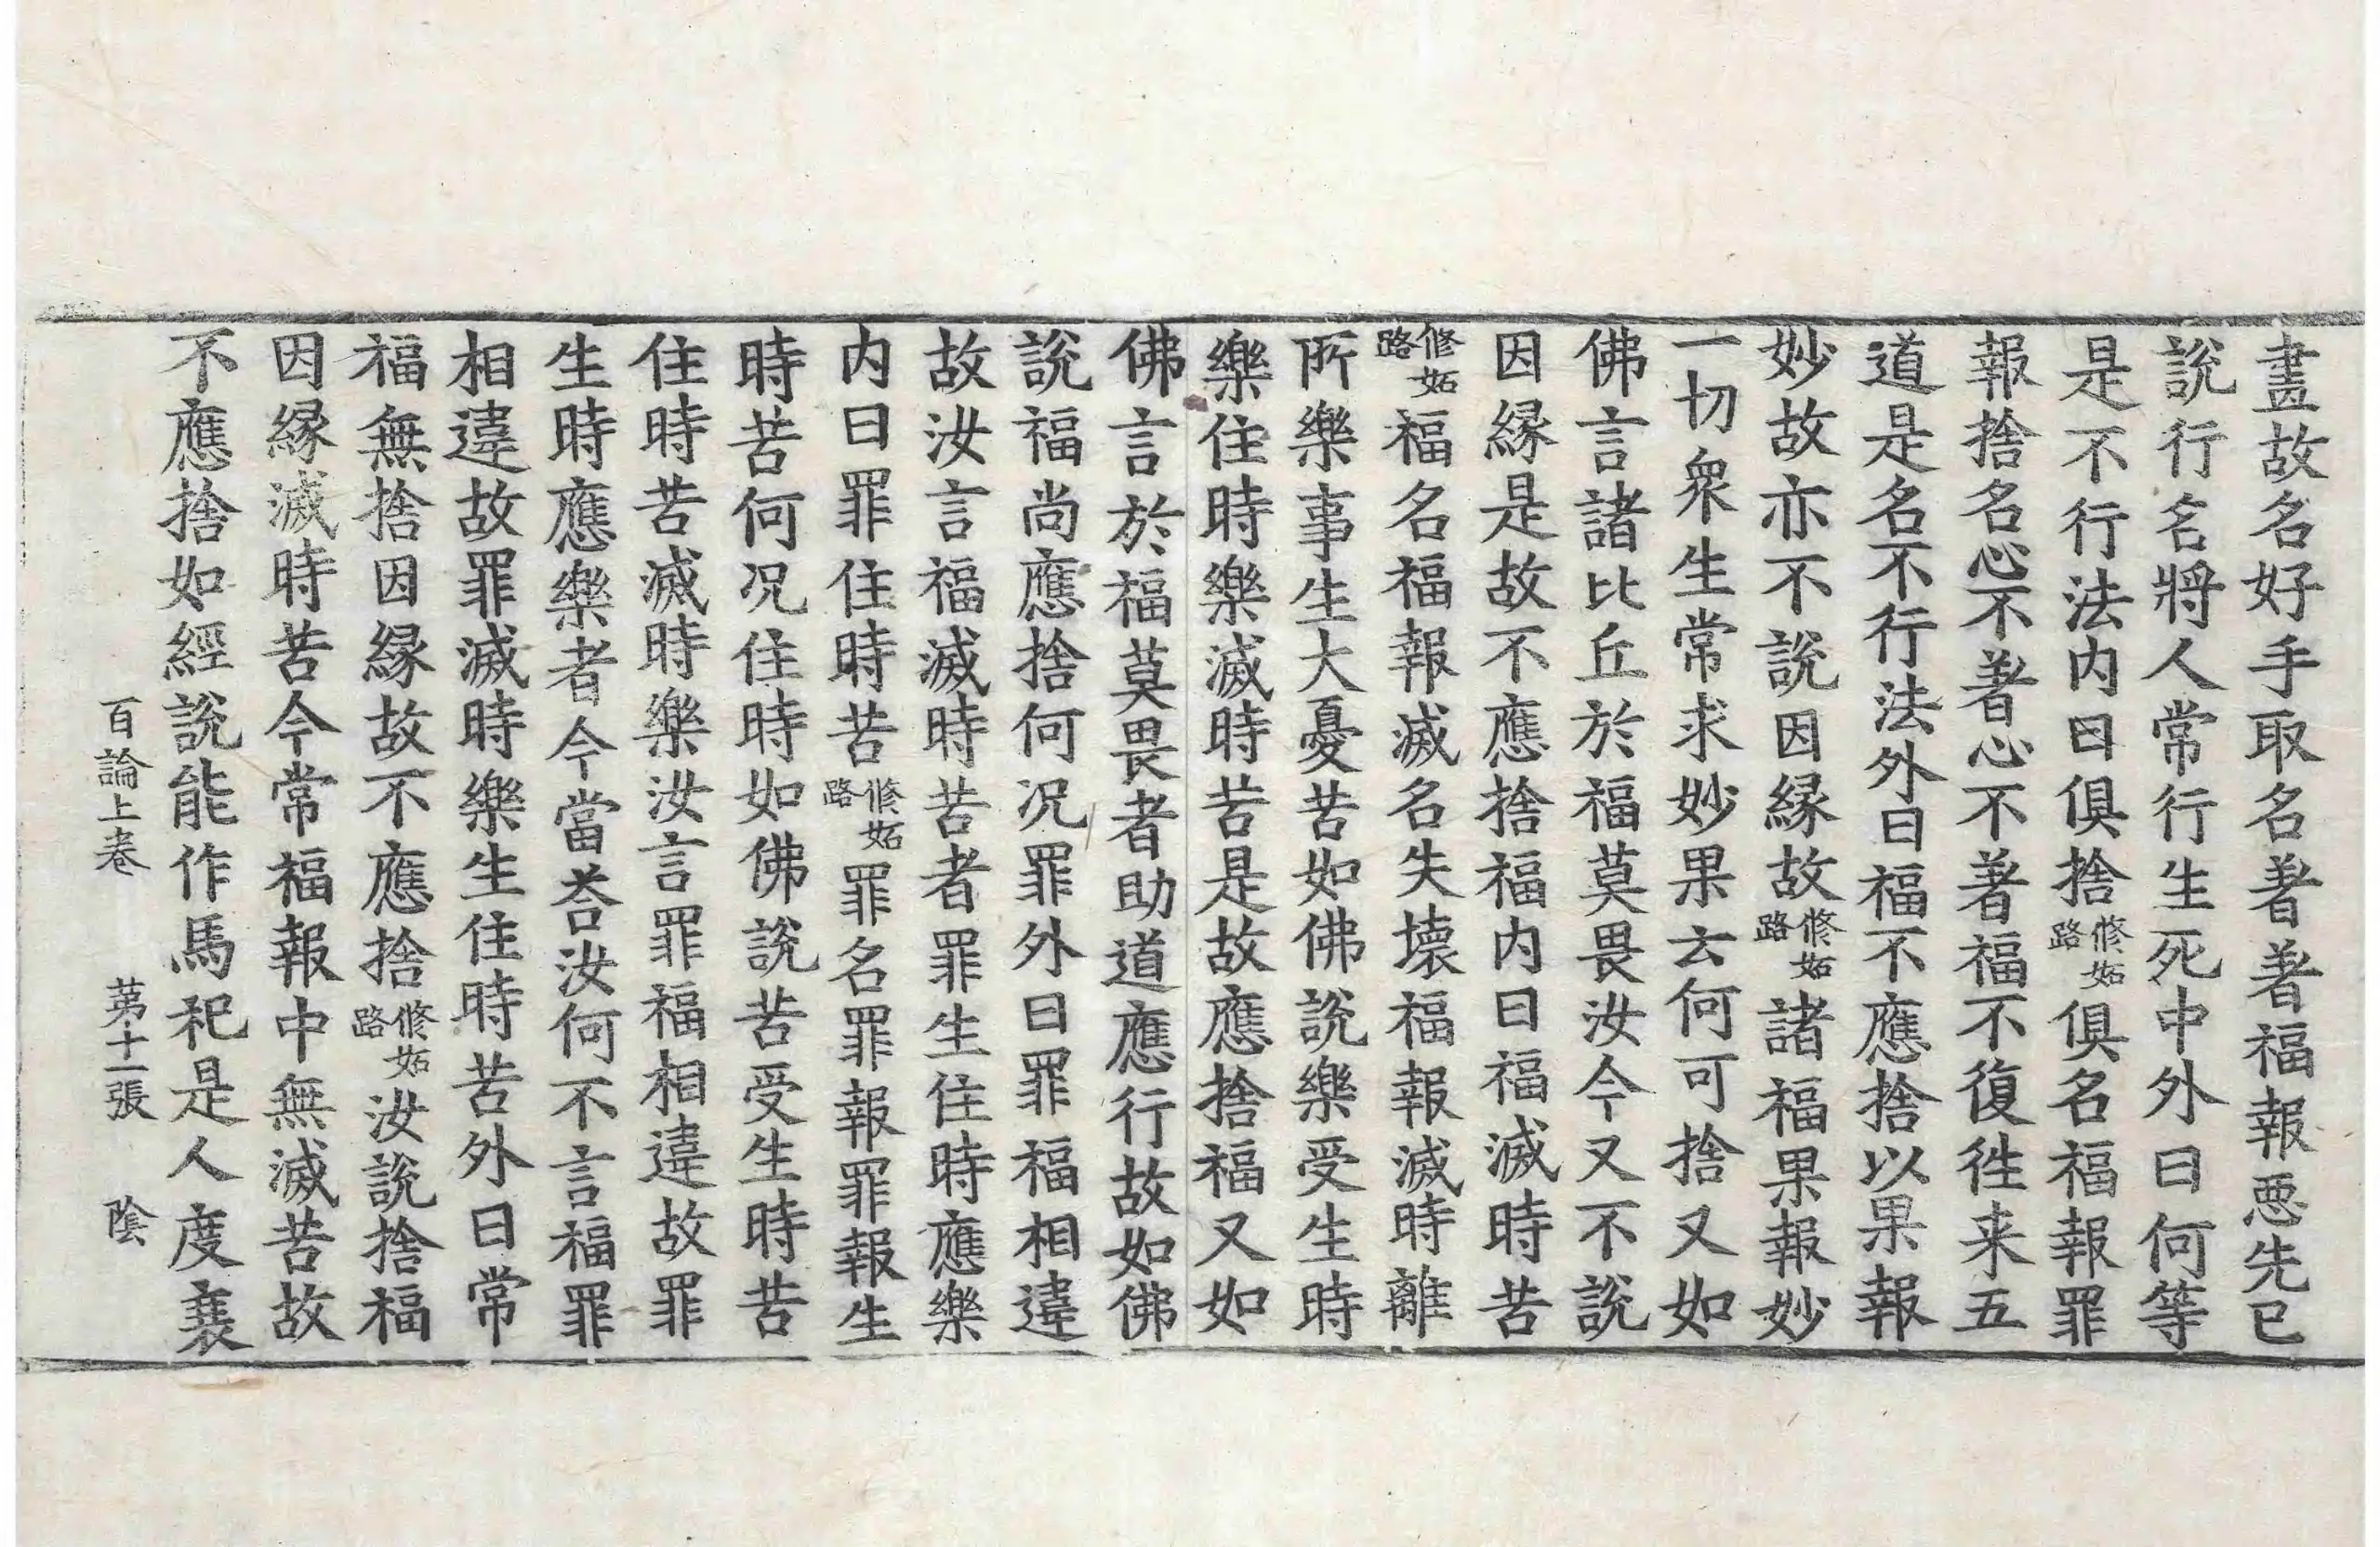 畫故名好手取名著著福報惡先已
說行名將人常行生死中外曰何等
是不行法內曰俱捨修妬路俱名福報罪
報捨名心不著心不著福不復徃来五
道是名不行法外曰福不應捨以果報
妙故亦不說因縁故修妬路諸福果報妙
一切衆生常求妙果云何可捨又如
佛言諸比丘於福莫畏汝今又不說
因縁是故不應捨福內曰福滅時苦
修妬路福名福報滅名失壞福報滅時離
所樂事生大憂苦如佛說樂受生時
樂住時樂滅時苦是故應捨福又如
佛言於福莫畏者助道應行故如佛
說福尚應捨何况罪外曰罪福相違
故汝言福滅時苦者罪生住時應樂
內曰罪住時苦修妬路罪名罪報罪報生
時苦何况住時如佛說苦受生時苦
住時苦滅時樂汝言罪福相違故罪
生時應樂者今當荅汝何不言福罪
相違故罪滅時樂生住時苦外曰常
福無捨因縁故不應捨修妬路汝說捨福
因縁滅時苦今常福報中無滅苦故
不應捨如經說能作馬祀是人度衰
百論上卷 苐十一張 陰